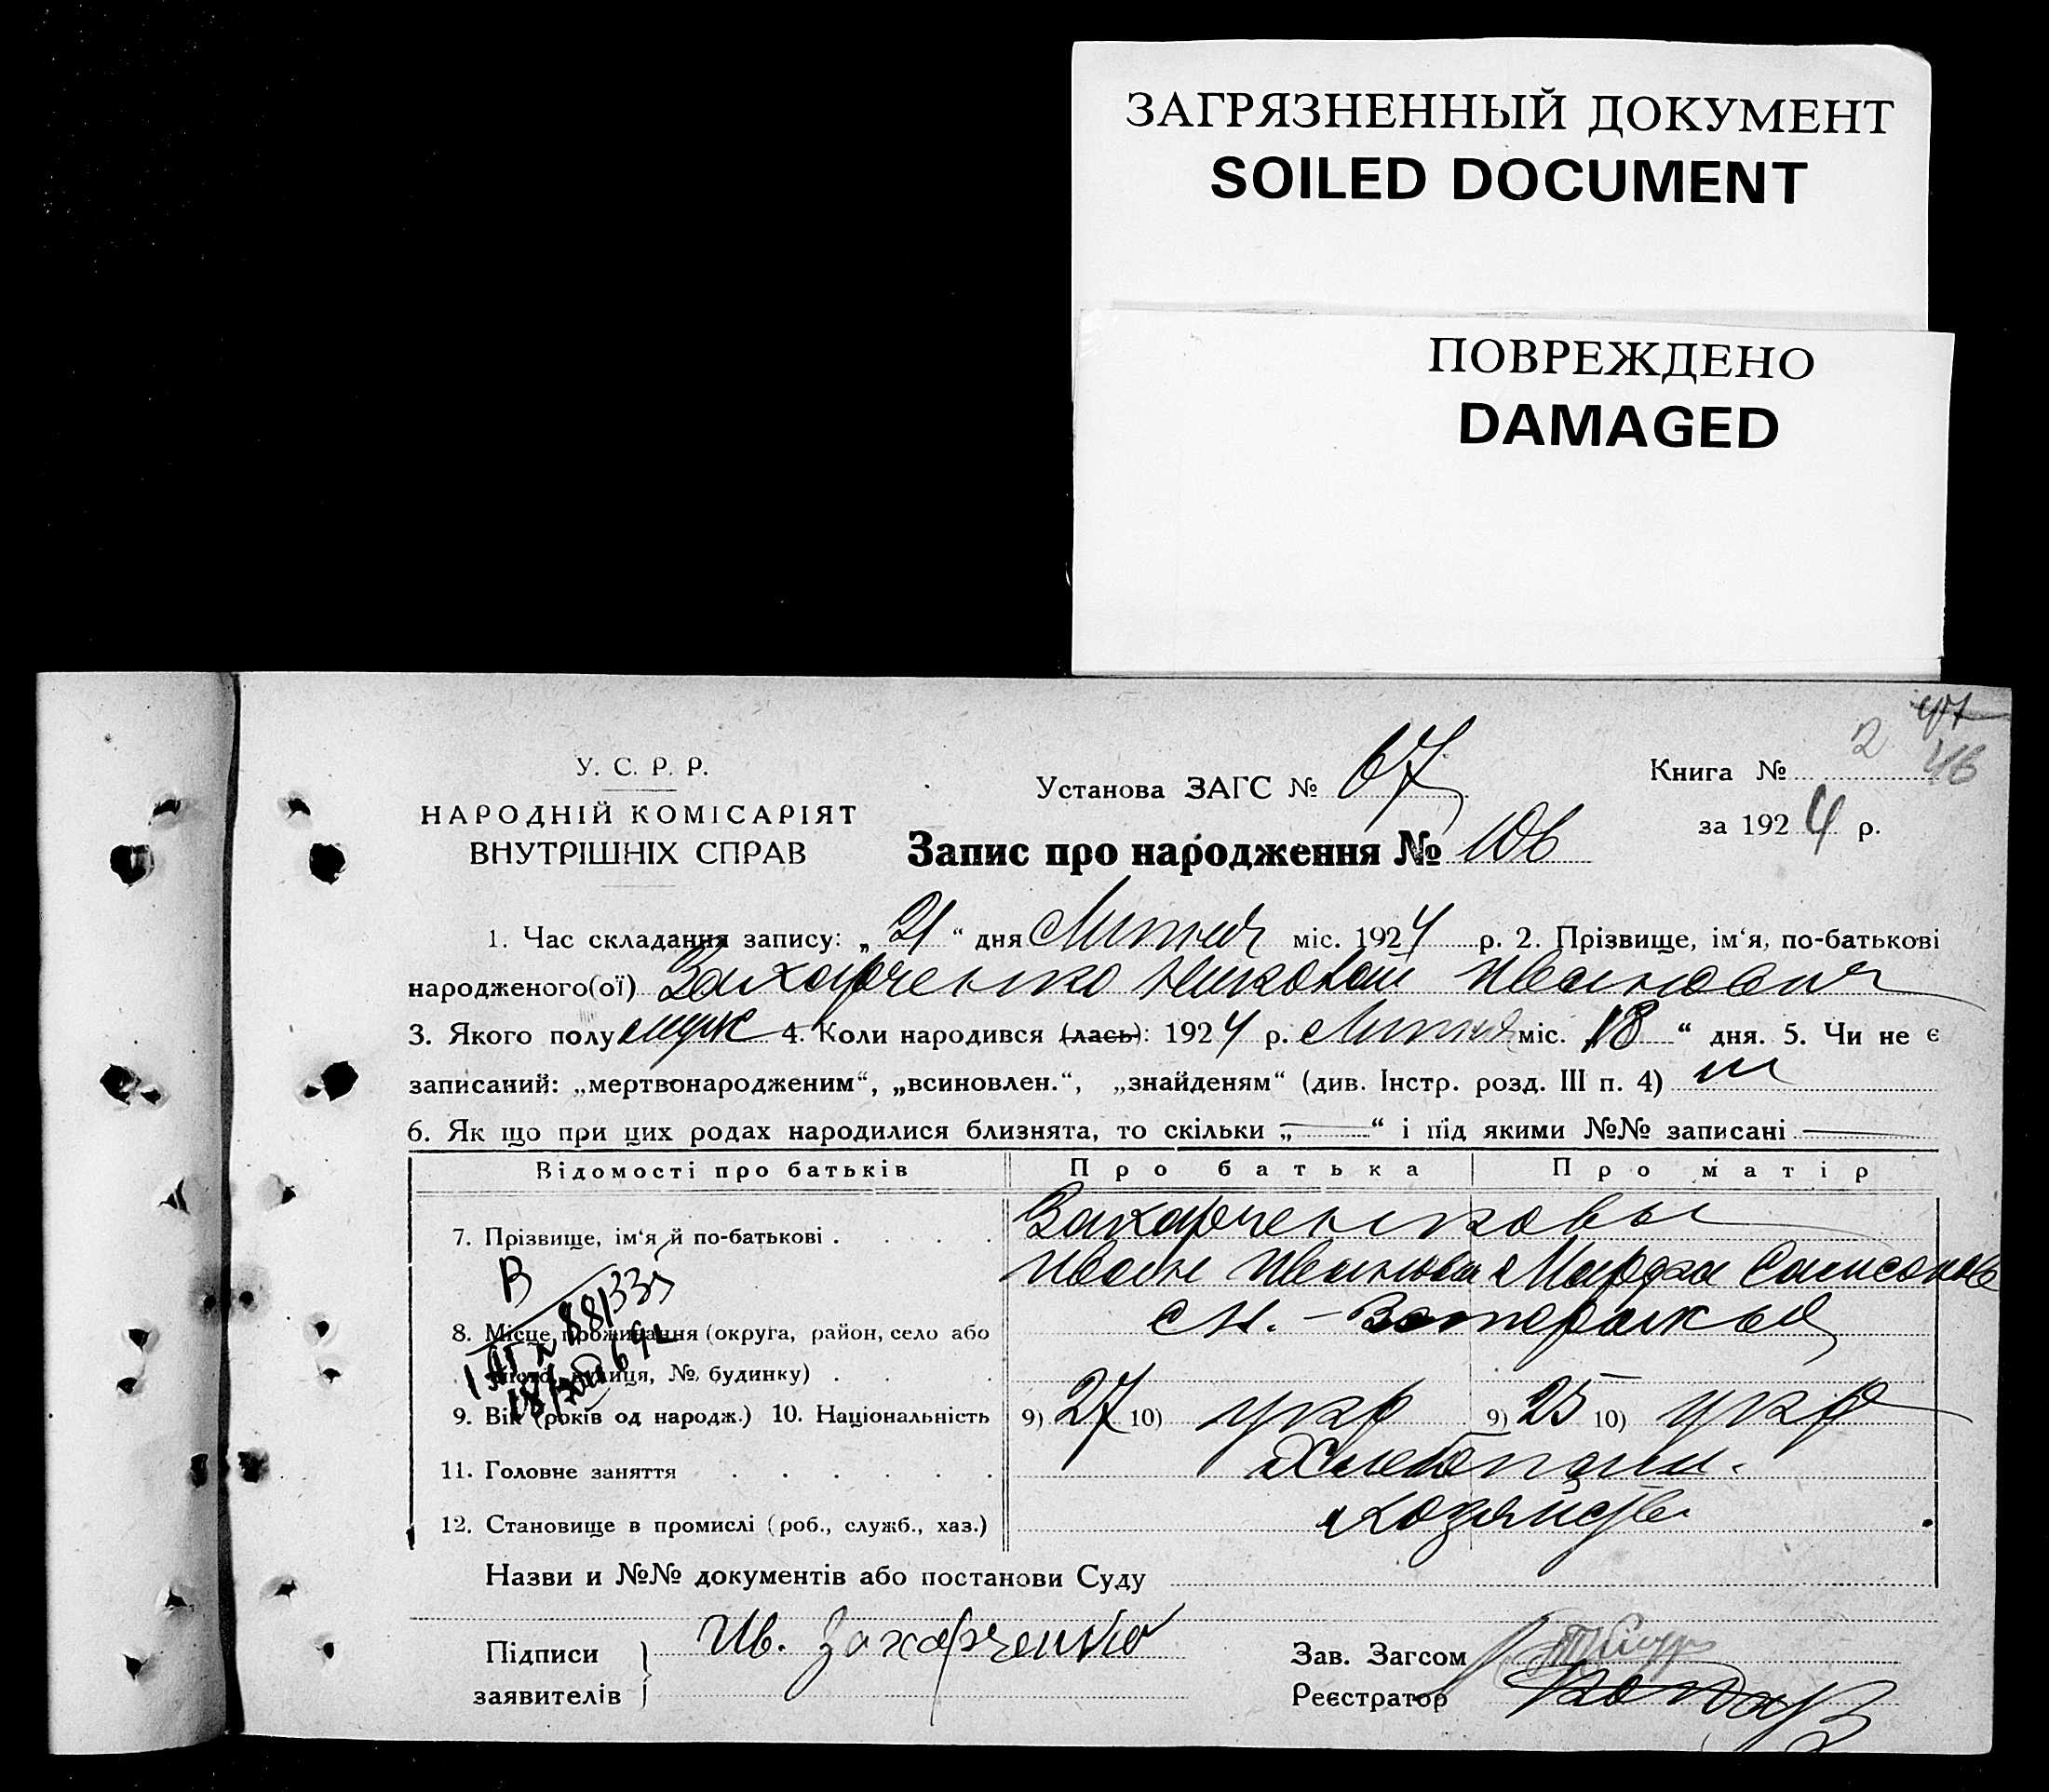 ЗАГРЯЗНЕННЫЙ ДОКУМЕНТ
SOILED DOCUMENT
ПОВРЕЖДЕНО
DAMAGED
2
46
У. С. Р. Р.
НАРОДНІЙ КОМІСАРІЯТ
ВНУТРІШНІХ СПРАВ
Установа ЗАГС № 67
Книга №
за 1924 р.
Запис про народження № 106
1. Час складання запису: „21“ дня Липня міс. 1924 р. 2. Прізвище, ім‘я, по-батькові
народженого(ої) Захарченко Николай Иванович
3. Якого полу муж 4. Коли народився (лась): 1924 р. Липня міс. „18“ дня. 5. Чи не є
записаний: „мертвонародженим“, „всиновлен.“, „знайденям“ (див. Інстр. розд. III п. 4)
6. Як що при цих родах народилися близнята, то скільки „—“ і під якими №№ записані —
Відомості про батьків Про батька Про матір
7. Прізвище, ім‘я й по-батькові Захарченковы
Иван Иванович Марфа
8. Місце проживання (округа, район, село або
місто, вулиця, № будинку)
9. Вік (років од народж.) 10. Національність 9) 27 10) укр 9) 25 10) укр
11. Головне заняття Хлебопаш.
12. Становище в промислі (роб., служб., хаз.) хозяйств
Назви и №№ документів або постанови Суду
Підписи
заявителів
Ив. Захарченко
Зав. Загсом
Реєстратор